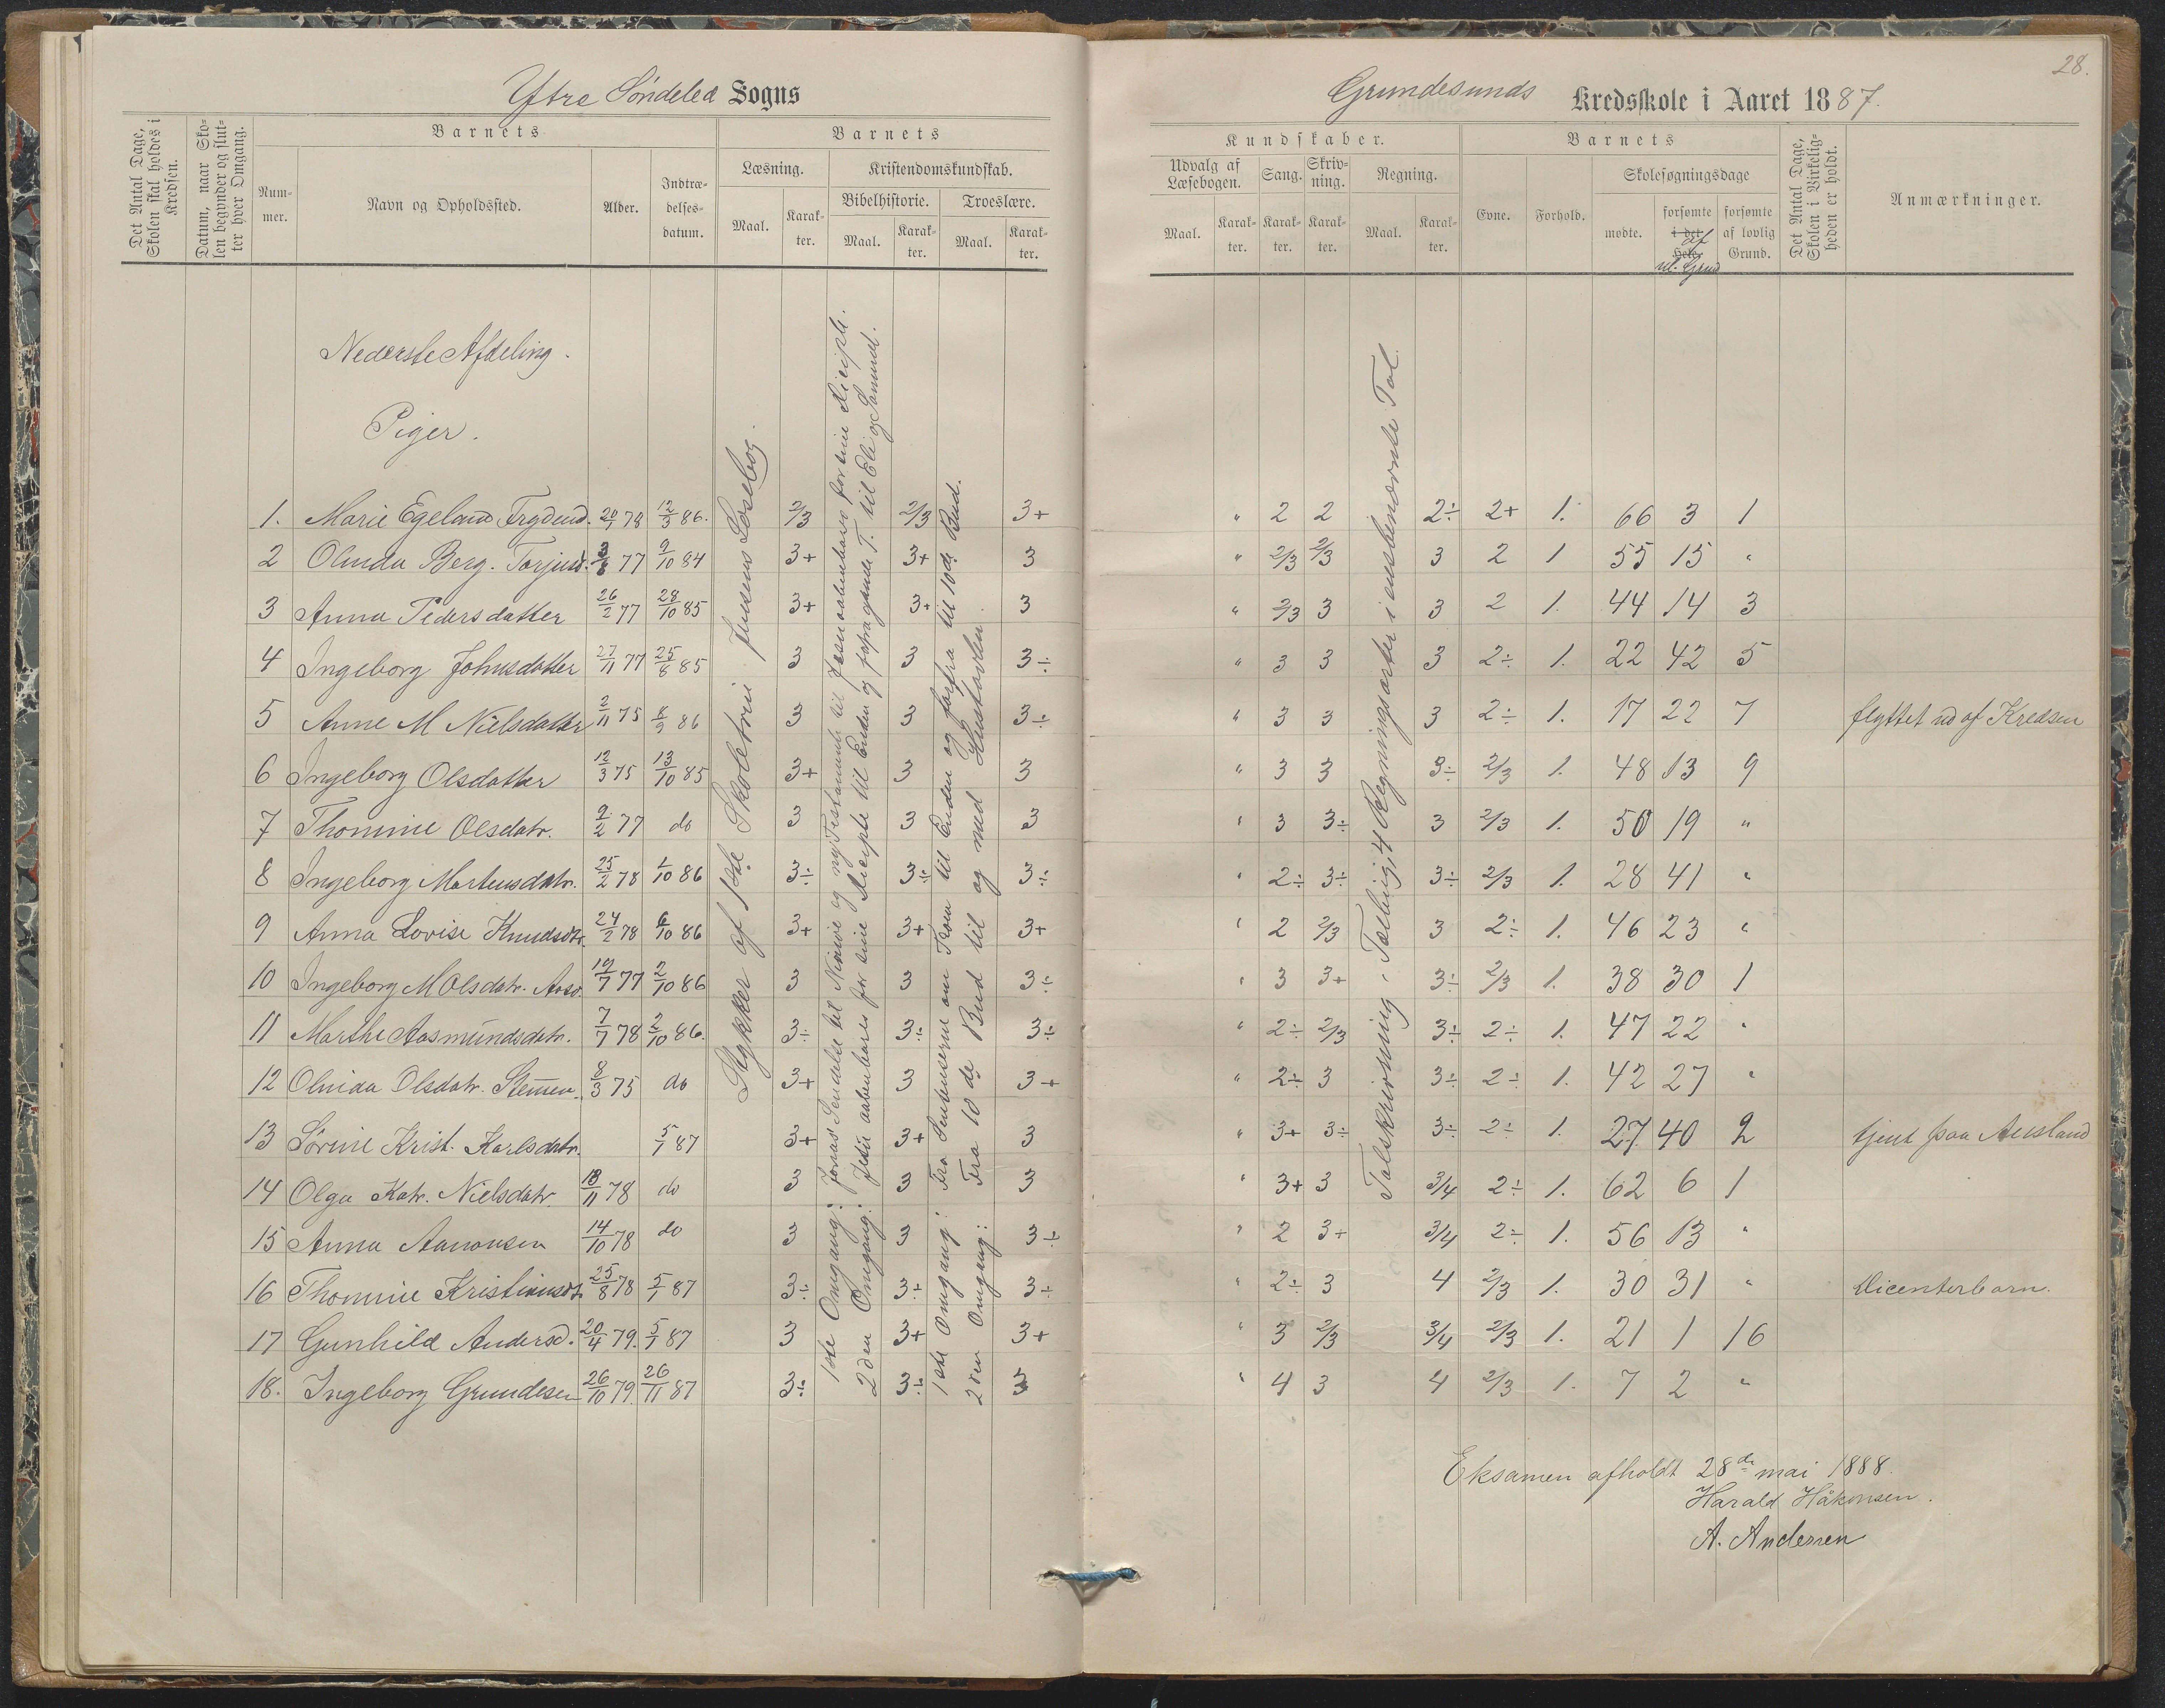 28.
Yttre Søndeled Sogns
Grundesunds Kredsskole i Aaret 1887.
Det Antal Dage, Skolen skal holdes i Kredsen.
Datum, naar Skolen begynder og slutter hver Omgang.
Barnets
Nummer.
Navn og Opholdssted.
Alder.
Indtrædelsesdatum.
Barnets
Læsning.
Maal.
Karakter.
Kristendomskundskab.
Bibelhistorie.
Maal.
Karakter.
Troeslære.
Maal.
Karakter.
Kundskaber.
Udvalg af Læsebogen.
Maal.
Karakter.
Sang.
Karakter.
Skrivning.
Karakter.
Regning.
Maal.
Karakter.
Barnets
Evne.
Forhold.
Skolesøgningsdage
mødte.
forsømte i det Hele.
af ul. Grund
forsømte af lovlig Grund.
Det Antal Dage, Skolen i Virkeligheden er holdt.
Anmærkninger.
Nederste Afdeling.
Piger.
Stykker af 1ste Skoletrin Jensens Læsebog.
1ste Omgang: Jonas' Sendelse til Ninive og ny Testamente til Jesus aabenbares for sine Disciple.
2den Omgang: Jesu aabenbares for sine Disciple til Enden og fra gamle T. til Eli og Samuel.
1ste Omgang: Fra Sentenserne om Troen til Enden og forfra til 10de Bud.
2den Omgang: Fra 10de Bud til og med Hustavlen.
Talskrivning, Tælling, 4 Regningsarter i eensbenævnte Tal.
1. Marie Egeland Trydend. 20/1 78 12/3 86. 2/3 2/3 3+ " 2 2 2÷ 2+ 1. 66 3 1
2 Olinda Berg. Torjusd. 3/8 77 9/10 84 3+ 3+ 3 " 2/3 2/3 3 2 1 55 15 "
3 Anna Pedersdatter 26/2 77 28/10 85 3+ 3+ 3 " 2/3 3 3 2 1. 44 14 3
4 Ingeborg Johnsdatter 27/11 77 25/8 85 3 3 3÷ " 3 3 3 2÷ 1. 22 42 5
5 Anne M Nielsdatter 2/11 75 8/9 86 3 3 3÷ " 3 3 3 2÷ 1. 17 22 7 flyttet ud af Kredsen
6 Ingeborg Olsdatter 12/3 75 13/10 85 3+ 3 3 " 3 3 3÷ 2/3 1. 48 13 9
7 Thomine Olsdatr. 9/2 77 do 3 3 3 " 3 3÷ 3 2/3 1. 50 19 "
8 Ingeborg Martensdatr. 25/2 78 1/10 86 3÷ 3÷ 3÷ " 2÷ 3÷ 3÷ 2/3 1. 28 41 "
9 Anna Lovise Knudsdtr. 24/2 78 6/10 86 3+ 3+ 3+ " 2 2/3 3 2÷ 1. 46 23 "
10 Ingeborg M Olsdatr. Aasv. 19/7 77 2/10 86 3 3 3÷ " 3 3+ 3÷ 2/3 1. 38 30 1
11 Marthe Aasmundsdatr. 7/7 78 2/10 86. 3÷ 3÷ 3÷ " 2÷ 2/3 3÷ 2÷ 1. 47 22 "
12 Olnida Olsdatr. Stemmen. 8/3 75 do 3+ 3 3+ " 2÷ 3 3÷ 2÷ 1. 42 27 "
13 Sørine Krist. Karlsdatr. 5/1 87 3+ 3+ 3 " 3+ 3÷ 3÷ 2÷ 1. 27 40 2 tjent paa Ausland
14 Olga Katr. Nielsdatr. 18/11 78 do 3 3 3 " 3+ 3 3/4 2÷ 1. 62 6 1
15 Anna Aanonsen 14/10 78 do 3 3 3÷ " 2 3+ 3/4 2÷ 1. 56 13 "
16 Thomine Kristiansdt. 25/8 78 5/1 87 3÷ 3÷ 3÷ " 2÷ 3 4 2/3 1. 30 31 " Dicenterbarn.
17 Gunhild Andersd. 20/4 79. 5/1 87 3 3+ 3+ " 3 2/3 3/4 2/3 1. 21 1 16
18. Ingeborg Grundesen 26/10 79. 26/11 87 3÷ 3÷ 3 " 4 3 4 2/3 1. 7 2 "
Eksamen afholdt 28de mai 1888.
Harald Håkonsen.
A. Andersen